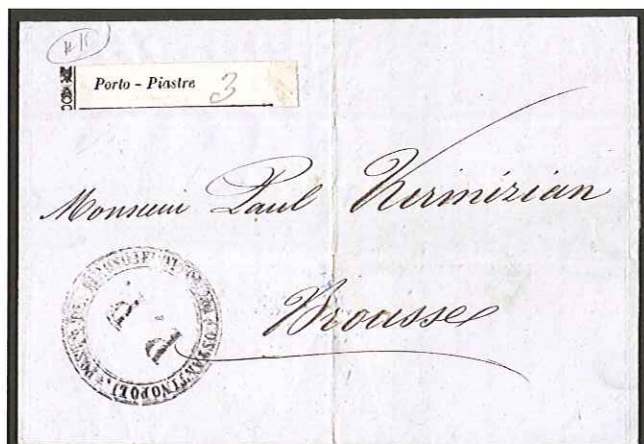 Porto - Piastre 3
Monsieur Paul Kermizian
Brousse
P. P.
COSTANTINOPOLI